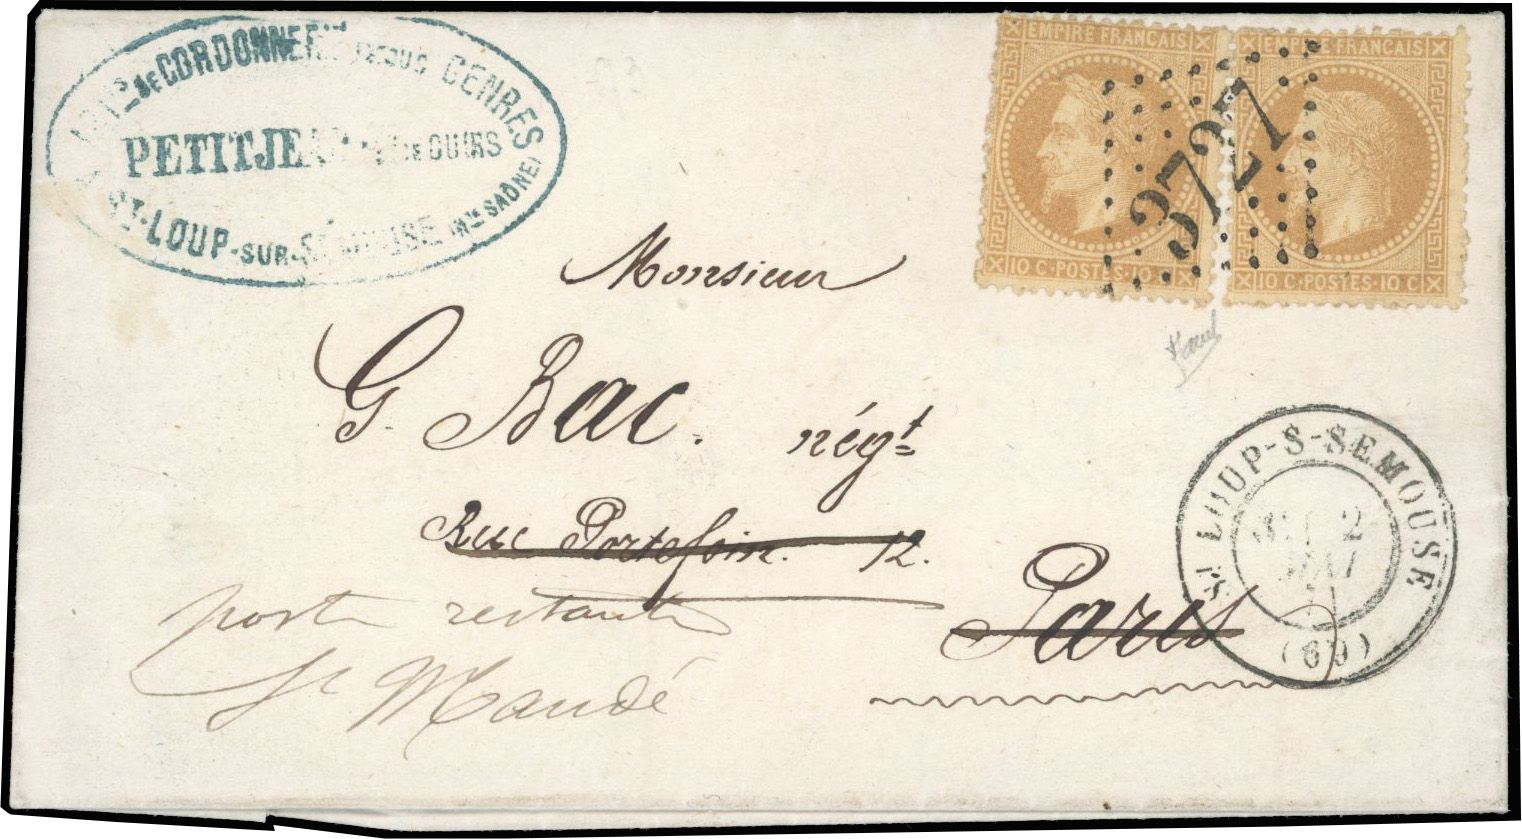 DE CORDONNERIE TOUS GENRES
PETITJEAN DE CUIRS
ST-LOUP-SUR-SEMOUSE (Hte SAÔNE)
EMPIRE FRANÇAIS
10 C·POSTES·10 C
EMPIRE FRANÇAIS
10 C·POSTES·10 C
3727
Monsieur
G. Bac. négt
Rue Portefoin. 12.
Paris
poste restante
St Mandé
ST LOUP-S-SEMOUSE
2
(69)